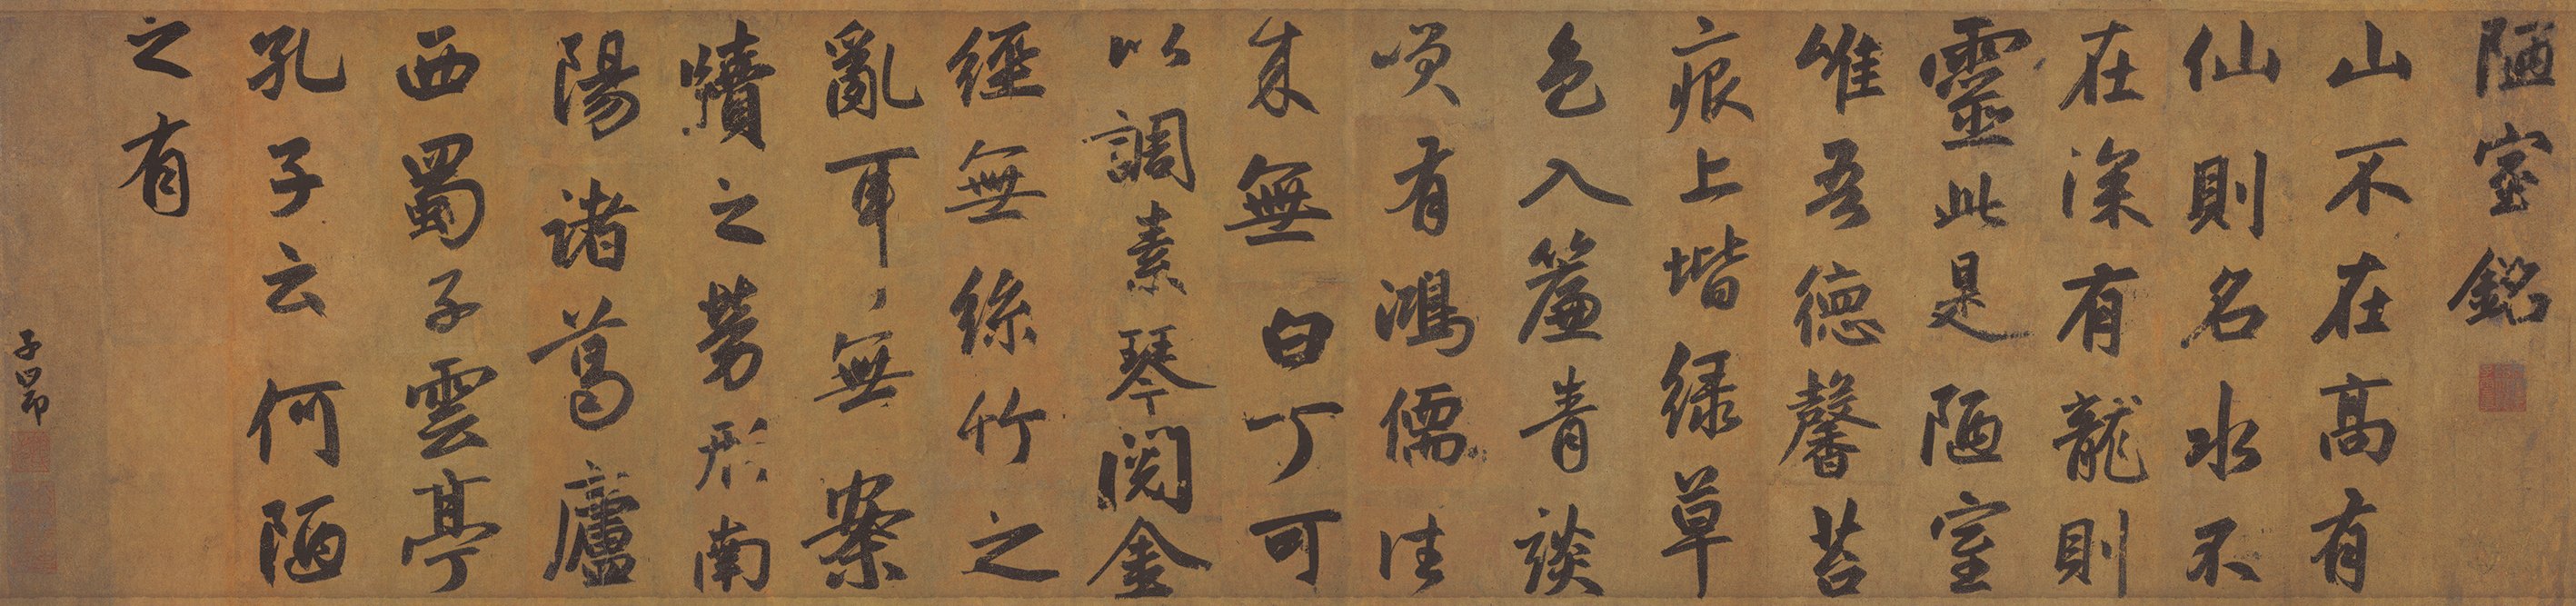 陋室銘
山不在高有
仙則名水不
在深有龍則
靈此是陋室
唯吾德馨苔
痕上堦緑草
色入簾青談
咲有鴻儒往
来無白丁可
以調素琴閱金
經無絲竹之
亂耳無案
牘之勞形南
陽諸葛廬
西蜀子雲亭
孔子云何陋
之有
子昂